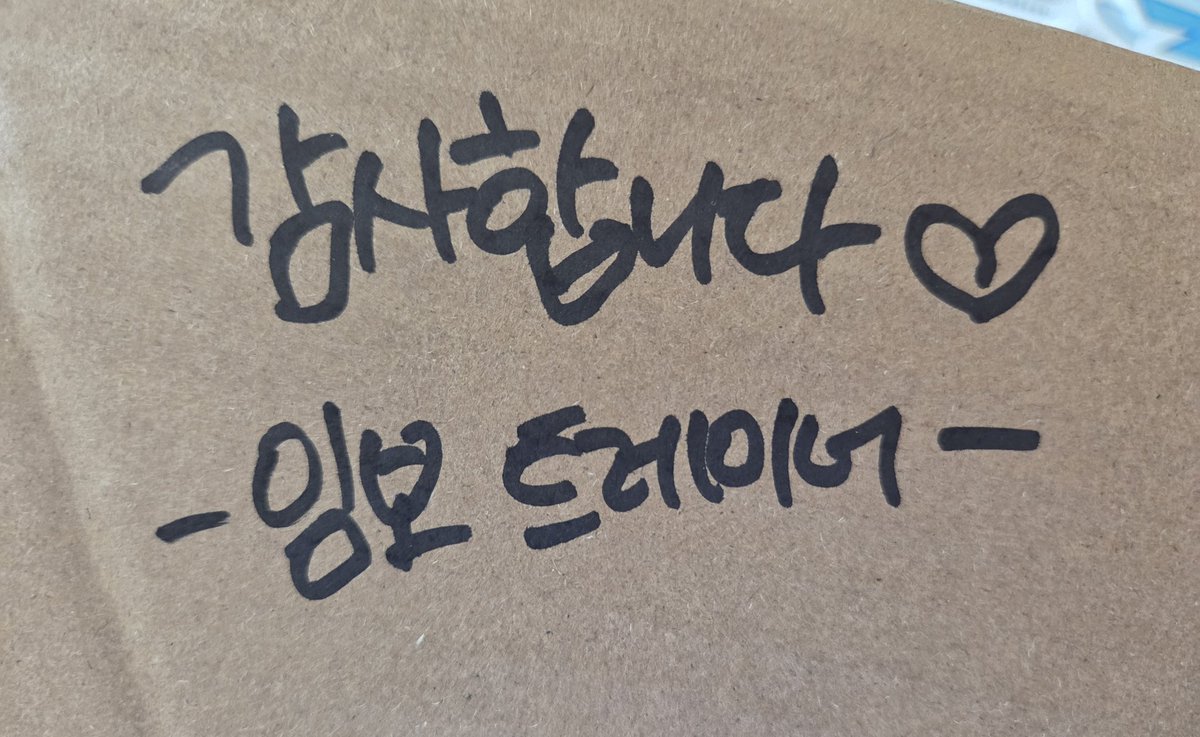 감사합니다 ♡
- 임보 트레이너 -